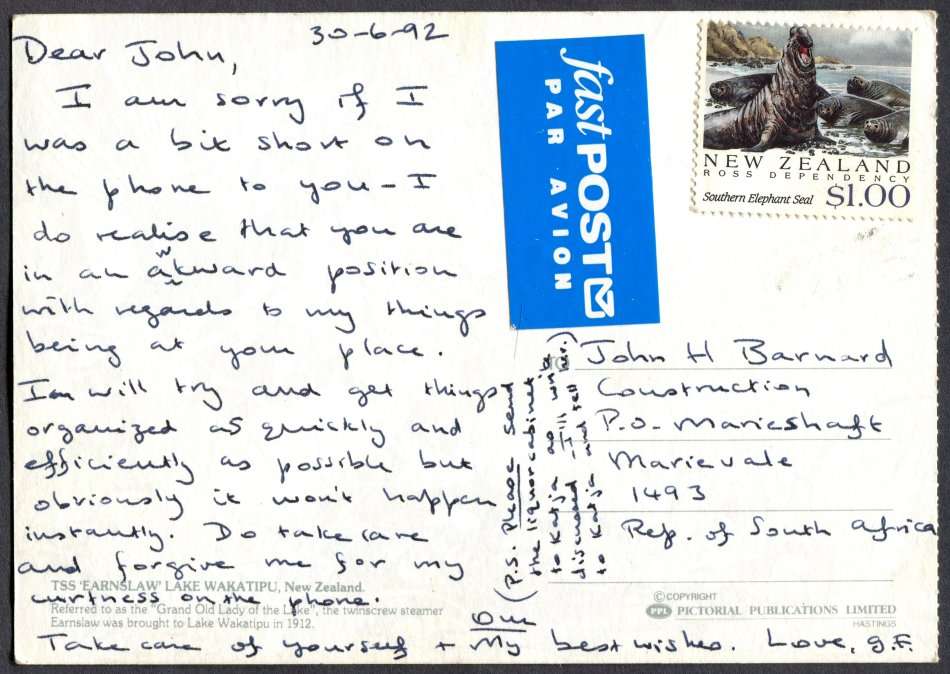 30-6-92
Dear John,
I am sorry if I
was a bit short on
the phone to you - I
do realise that you are
in an awkward position
with regards to my things
being at your place.
Ian will try and get things
organized as quickly and
efficiently as possible but
obviously it won't happen
instantly. Do take care
and forgive me for my
curtness on the phone.
Take care of yourself + My best wishes. Love, g.F.
Our
(P.S. Please Send
the liquor cabinet
to Katja as
discussed - I'll write
to Katja and tell her.)
TSS 'EARNSLAW' LAKE WAKATIPU, New Zealand.
Referred to as the "Grand Old Lady of the Lake", the twinscrew steamer
Earnslaw was brought to Lake Wakatipu in 1912.
fastPOST
PAR AVION
NEW ZEALAND
ROSS DEPENDENCY
Southern Elephant Seal $1.00
TO
John H Barnard
Construction
P.O. Marieshaft
Marievale
1493
Rep. of South Africa
© COPYRIGHT
PPL PICTORIAL PUBLICATIONS LIMITED
HASTINGS